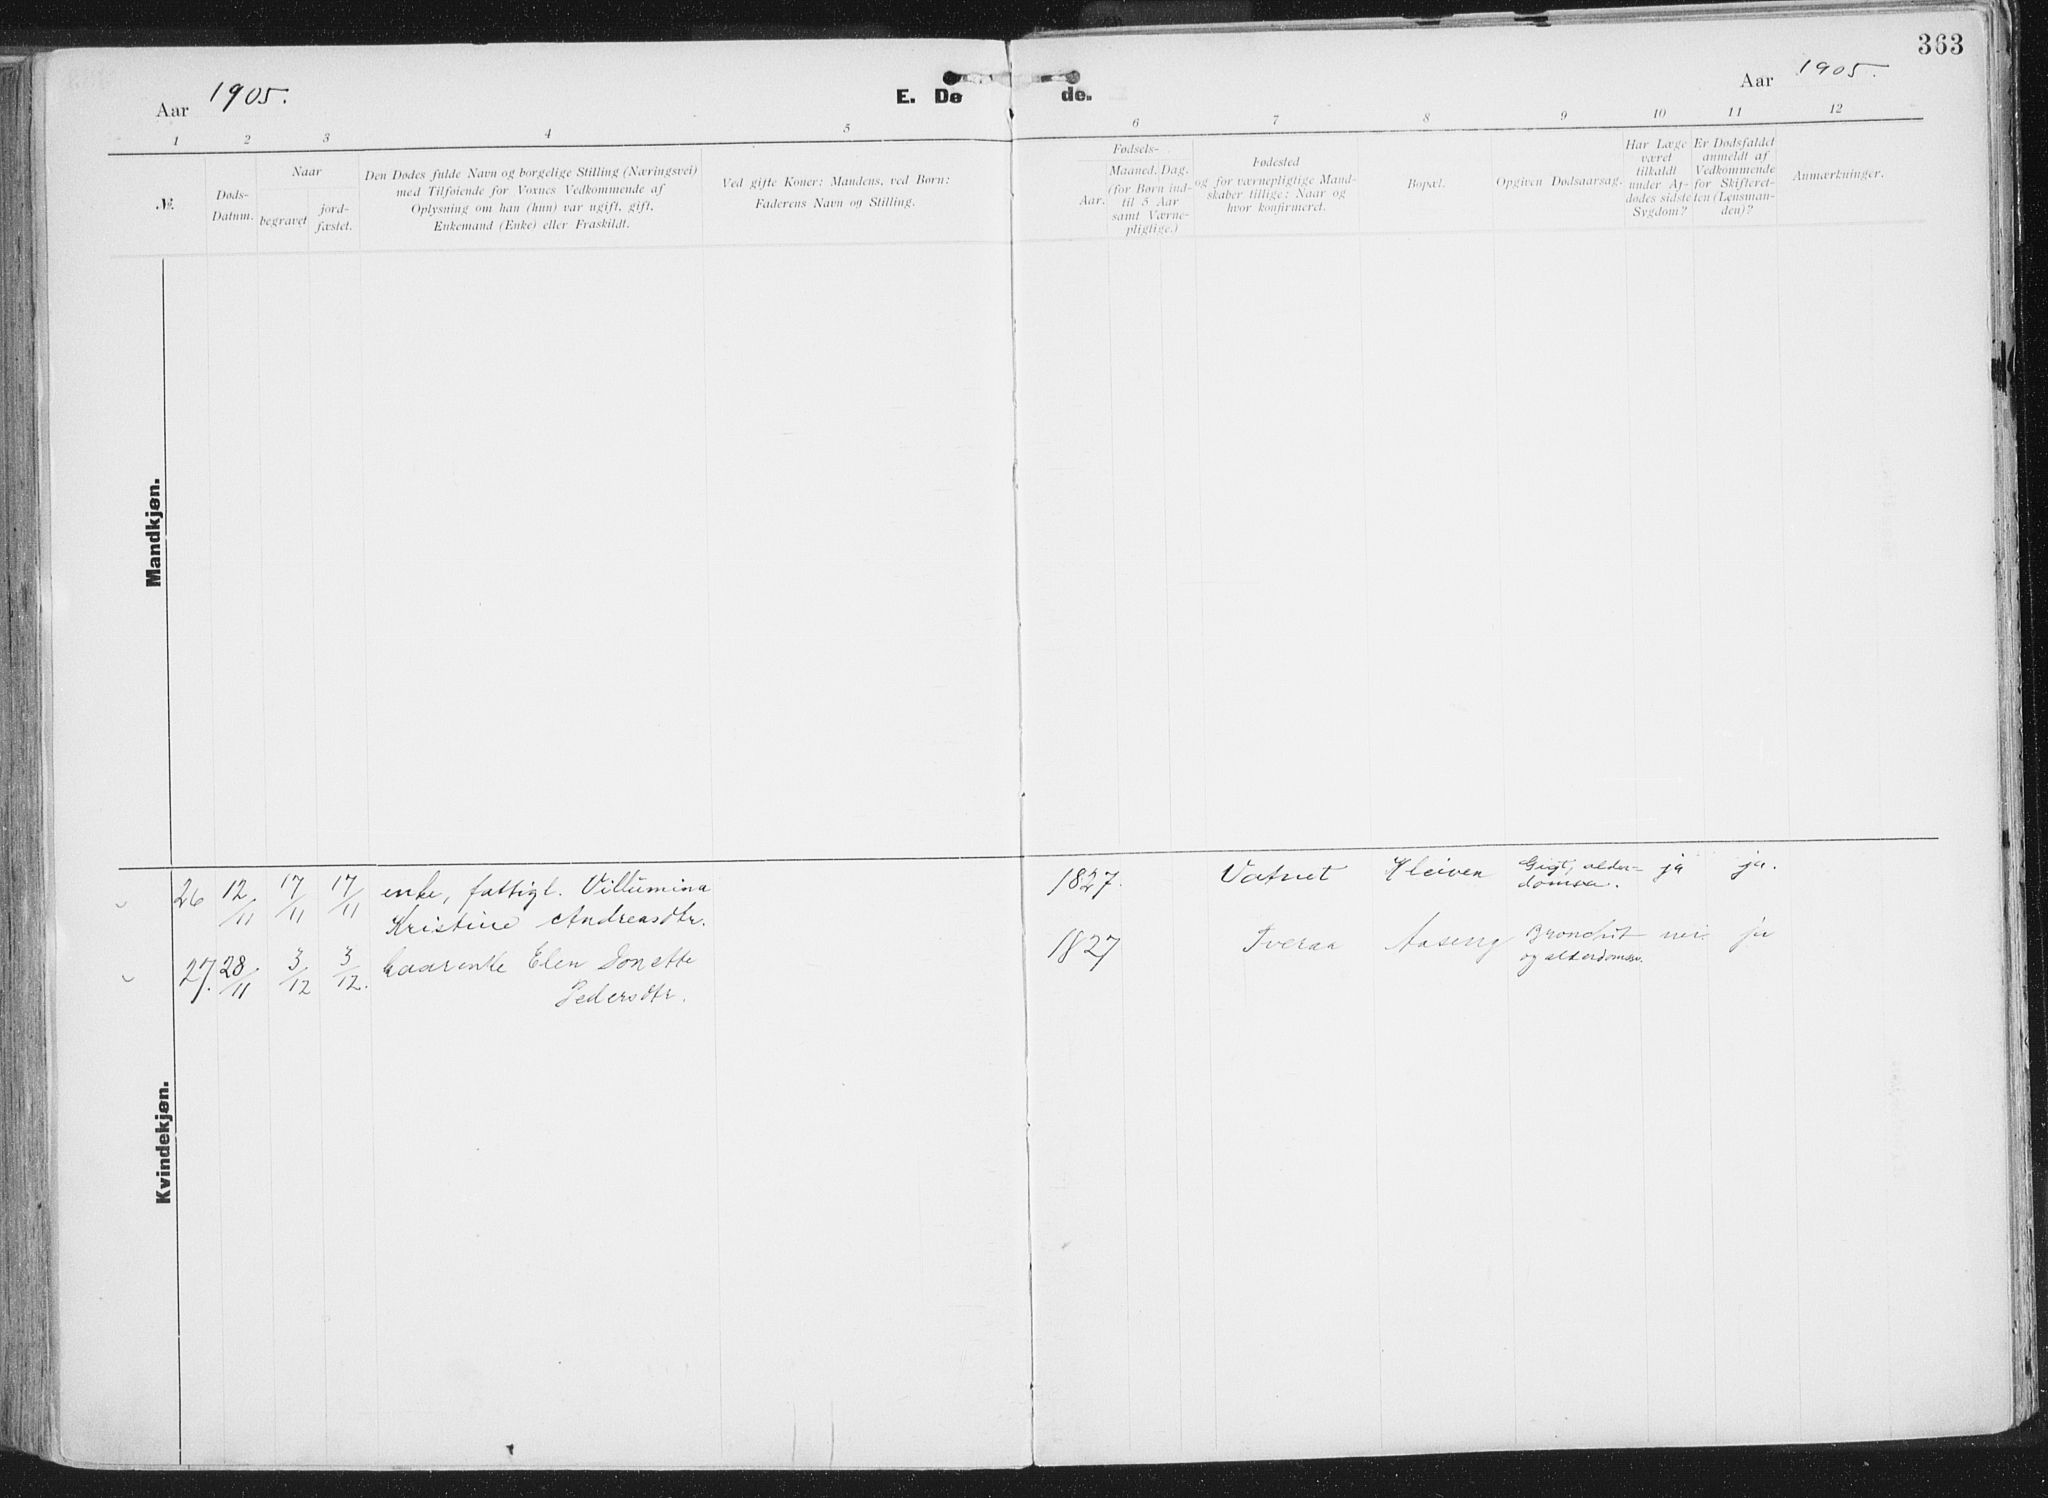 363
Aar 1905.
E. Dø de.
Aar 1905.
1 2 3 4 5 6 7 8 9 10 11 12
№.
Døds-
Datum.
Naar
begravet
jord-
fæstet.
Den Dødes fulde Navn og borgelige Stilling (Næringsvei)
med Tilføiende for Voxnes Vedkommende af
Oplysning om han (hun) var ugift, gift,
Enkemand (Enke) eller Fraskildt.
Ved gifte Koner: Mandens, ved Børn:
Faderens Navn og Stilling.
Fødsels-
Aar.
Maaned. Dag.
(for Børn ind-
til 5 Aar
samt Værne-
pligtige.)
Fødested
og for værnepligtige Mand-
skaber tillige: Naar og
hvor konfirmeret.
Bopæl.
Opgiven Dødsaarsag.
Har Læge
været
tilkaldt
under Af-
dødes sidste
Sygdom?
Er Dødsfaldet
anmeldt af
Vedkommende
for Skifteret-
ten (Lensman-
den)?
Anmærkninger.
Mandkjøn.
Kvindekjøn.
26 12/11 17/11 17/11 enke, fattigl. Villumina 1827. Vatnet Kleiven Gigt, alder- ja ja.
Kristine Andreasdtr. domssv.
27. 28/11 3/12 3/12. Gaarenke Elen Donette 1827 Tveraa Aaseng Bronchit nei ja
Pedersdtr. og alderdomssv.